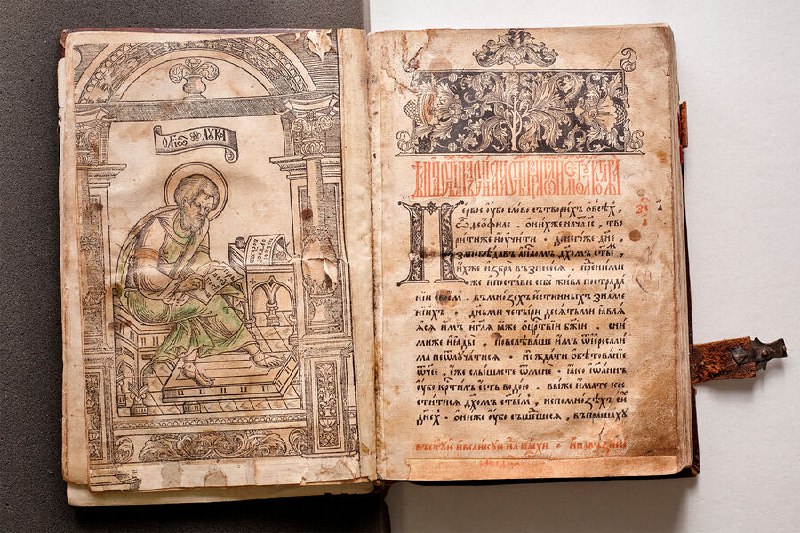 ЛУКА
Первое ѹбо слово сътворихъ ѡвсѣхъ,
ѽ ѳеофиле. ѡнихже начатъ іс҃, тво
ритиже и ѹчити. донегоже дн҃е,
заповѣдавъ апⷭ҇ломъ дх҃омъ ст҃ы,
ихже избра възнесесѧ. предними
же ипостави себе жива пострада
нїи своем. вᲂмнозѣхъ истинныхъ знаме
нїихъ. дн҃ьми четыри десѧтьми ꙗвлѧ
ѧсѧ имъ игл҃ѧ ꙗже ѡцрⷭ҇твїи бж҃їи. сни
миже иꙗды повелѣваше имъ ѿ іерⷭ҇али
ма неѿлучатисѧ. нождати ѡбѣтованїе
ѡч҃ее, еже слышасте ѿмене. ꙗко іѡаннъ
ѹбо крⷭ҇тилъ есть водою. выже имате кре
ститисѧ дх҃омъ ст҃ымъ, непомнозѣхъ сиⷯ
дн҃ехъ. ѡниже ѹбо съшедшесѧ, въпрашахѹ